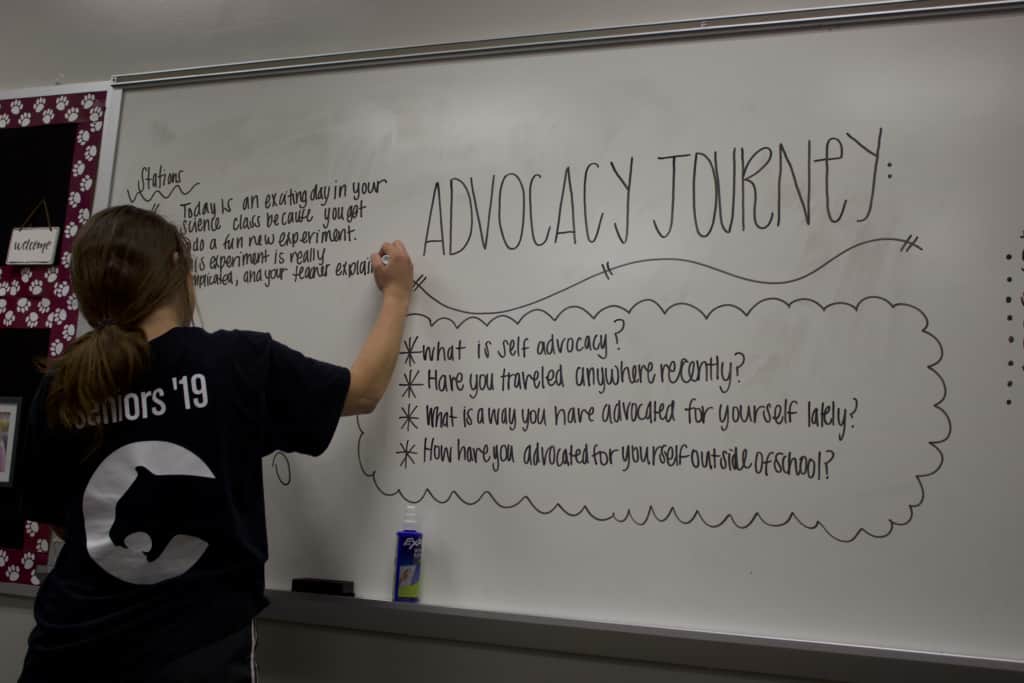 welcome
Stations
Today is an exciting day in your
science class because you get
do a fun new experiment.
experiment is really
and your teacher
ADVOCACY JOURNEY:
what is self advocacy?
Have you traveled anywhere recently?
What is a way you have advocated for yourself lately?
How have you advocated for yourself outside of school?
Seniors '19